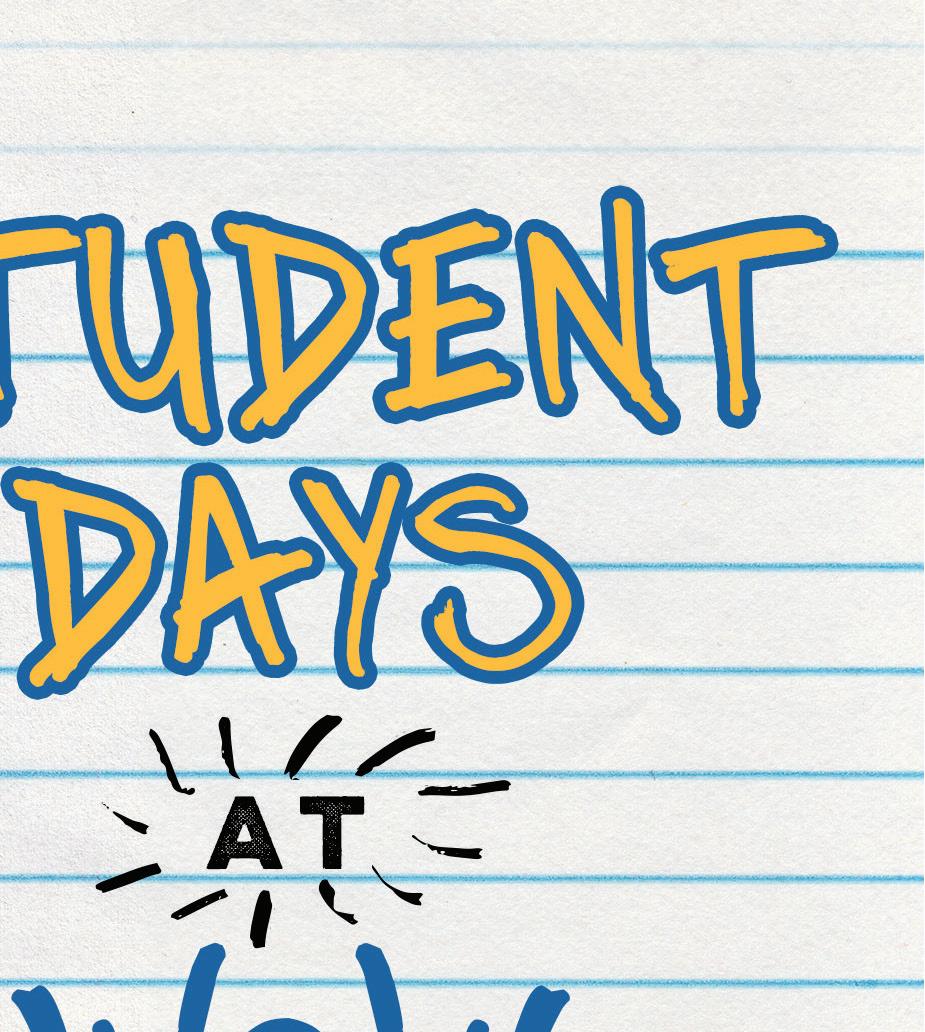 TUDENT
DAYS
AT